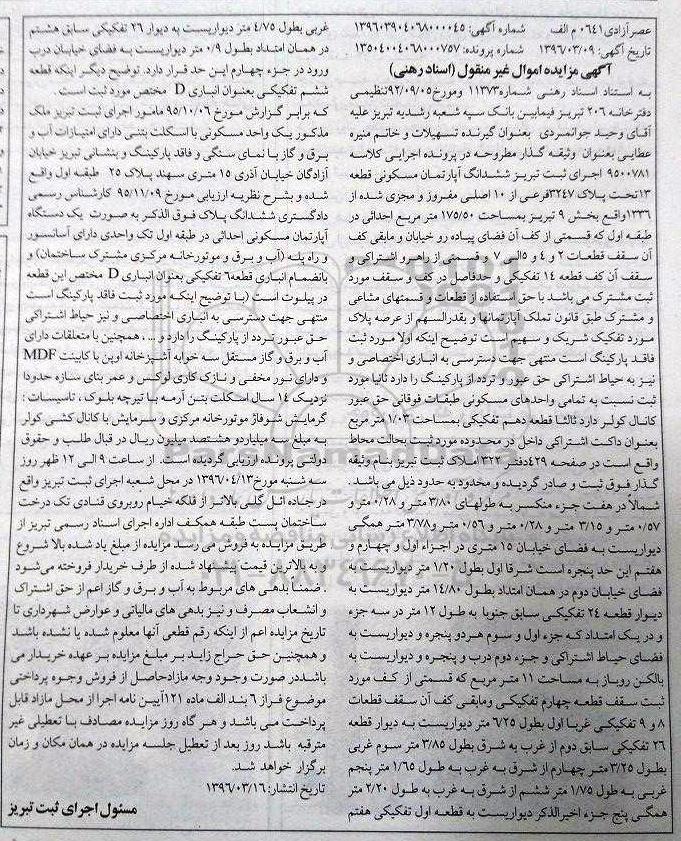 عصر آزادی ۰۶۴۱ م الف     شماره آگهی: ۱۳۹۶۰۳۹۰۴۰۶۸۰۰۰۰۴۵
تاریخ آگهی: ۱۳۹۶/۰۳/۰۹     شماره پرونده: ۱۳۵۰۴۰۰۴۰۶۸۰۰۰۷۵۷
آگهی مزایده اموال غیر منقول (اسناد رهنی)
به استناد اسناد رهنی شماره ۱۱۳۷۳ ومورخ ۹۲/۰۹/۰۵ تنظیمی
دفترخانه ۲۰۶ تبریز فیمابین بانک سپه شعبه رشدیه تبریز علیه
آقای وحید جوانمردی بعنوان گیرنده تسهیلات و خانم منیره
عطایی بعنوان وثیقه گذار مطروحه در پرونده اجرایی کلاسه
۹۵۰۰۷۸۱ اجرای ثبت تبریز ششدانگ آپارتمان مسکونی قطعه
۱۳ تحت پلاک ۳۲۴۷ فرعی از ۱۰ اصلی مفروز و مجزی شده از
۱۳۳۶ واقع بخش ۹ تبریز بمساحت ۱۷۵/۵۰ متر مربع احداثی در
طبقه اول که قسمتی از کف آن فضای پیاده رو خیابان و مابقی کف
آن سقف قطعات ۲ و ۴ و ۵ الی ۷ و قسمتی از راهرو اشتراکی و
سقف آن کف قطعه ۱۴ تفکیکی و حدفاصل در کف و سقف مورد
ثبت مشترک می باشد با حق استفاده از قطعات و قسمتهای مشاعی
و مشترک طبق قانون تملک آپارتمانها و بقدرالسهم از عرصه پلاک
مورد تفکیک شریک و سهیم است توضیح اینکه اولا مورد ثبت
فاقد پارکینگ است منتهی جهت دسترسی به انباری اختصاصی و
نیز به حیاط اشتراکی حق عبور و تردد از پارکینگ را دارد ثانیا مورد
ثبت نسبت به تمامی واحدهای مسکونی طبقات فوقانی حق عبور
کانال کولر دارد ثالثا قطعه دهم تفکیکی بمساحت ۱/۰۳ متر مربع
بعنوان داکت اشتراکی داخل در محدوده مورد ثبت بحالت محاط
واقع است در صفحه ۴۲۹ دفتر ۳۲۲ املاک ثبت تبریز بنام وثیقه
گذار فوق ثبت و صادر گردیده و محدود به حدود ذیل می باشد.
شمالا در هفت جزء منکسر به طولهای ۳/۸۰ متر و ۰/۲۸ متر و
۰/۵۷ متر و ۳/۱۵ متر و ۰/۲۸ متر و ۰/۵۶ متر و ۳/۷۸ متر همگی
دیواریست به فضای خیابان ۱۵ متری در اجزاء اول و چهارم و
هفتم این حد پنجره است شرقا اول بطول ۱/۲۰ متر دیواریست به
فضای خیابان دوم در همان امتداد بطول ۱۴/۸۰ متر دیواریست به
دیوار قطعه ۲۴ تفکیکی سابق جنوبا به طول ۱۲ متر در سه جزء
و در یک امتداد که جزء اول و سوم هر دو پنجره و دیواریست به
فضای حیاط اشتراکی و جزء دوم درب و پنجره و دیواریست به
بالکن روباز به مساحت ۱۱ متر مربع که قسمتی از کف مورد
ثبت سقف قطعه چهارم تفکیکی ومابقی کف آن سقف قطعات
۸ و ۹ تفکیکی غربا اول بطول ۶/۲۵ متر دیواریست به دیوار قطعه
۲۶ تفکیکی سابق دوم از غرب به شرق بطول ۳/۸۵ متر سوم غربی
بطول ۳/۲۵ متر چهارم از شرق به غرب به طول ۱/۶۵ متر پنجم
غربی به طول ۱/۷۵ متر ششم از شرق به غرب به طول ۲/۲۰ متر
همگی پنج جزء اخیرالذکر دیواریست به قطعه اول تفکیکی هفتم
غربی بطول ۴/۷۵ متر دیواریست به دیوار ۲۶ تفکیکی سابق هشتم
در همان امتداد بطول ۰/۹ متر دیواریست به فضای خیابان درب
ورود در جزء چهارم این حد قرار دارد. توضیح دیگر اینکه قطعه
ششم تفکیکی بعنوان انباری D مختص مورد ثبت است.
که برابر گزارش مورخ ۹۵/۱۰/۰۶ مامور اجرای ثبت تبریز ملک
مذکور یک واحد مسکونی با اسکلت بتنی دارای امتیازات آب و
برق و گاز با نمای سنگی و فاقد پارکینگ و بنشانی تبریز خیابان
آزادگان خیابان آذری ۱۵ متری سهند پلاک ۲۵ طبقه اول واقع
شده و بشرح نظریه ارزیابی مورخ ۹۵/۱۱/۰۹ کارشناس رسمی
دادگستری ششدانگ پلاک فوق الذکر به صورت یک دستگاه
آپارتمان مسکونی احداثی در طبقه اول تک واحدی دارای آسانسور
و راه پله (آب و برق و موتورخانه مرکزی مشترک ساختمان) و
بانضمام انباری قطعه ۶ تفکیکی بعنوان انباری D مختص این قطعه
در پیلوت است (با توضیح اینکه مورد ثبت فاقد پارکینگ است
منتهی جهت دسترسی به انباری اختصاصی و نیز حیاط اشتراکی
حق عبور تردد از پارکینگ را دارد و ... ، همچنین با متعلقات دارای
آب و برق و گاز مستقل سه خوابه آشپزخانه اوپن با کابینت MDF
و دارای نور مخفی و نازک کاری لوکس و عمر بنای سازه حدودا
نزدیک ۱۴ سال اسکلت بتن آرمه با تیرچه بلوک ، تاسیسات :
گرمایش شوفاژ موتورخانه مرکزی و سرمایش با کانال کشی کولر
به مبلغ سه میلیاردو هشتصد میلیون ریال در قبال طلب و حقوق
دولتی پرونده ارزیابی گردیده است. از ساعت ۹ الی ۱۲ ظهر روز
سه شنبه مورخ ۱۳۹۶/۰۴/۱۳ در محل شعبه اجرای ثبت تبریز واقع
در جاده ائل گلی بالاتر از فلکه خیام روبروی قنادی تک درخت
ساختمان پست طبقه همکف اداره اجرای اسناد رسمی تبریز از
طریق مزایده به فروش می رسد مزایده از مبلغ یاد شده بالا شروع
و به بالاترین قیمت پیشنهاد شده از طرف خریدار فروخته می‌شود
. ضمنا بدهی های مربوط به آب و برق و گاز اعم از حق اشتراک
و انشعاب مصرف و نیز بدهی های مالیاتی و عوارض شهرداری تا
تاریخ مزایده اعم از اینکه رقم قطعی آنها معلوم شده یا نشده باشد
و همچنین حق حراج زاید بر مبلغ مزایده بر عهده خریدار می
باشد در صورت وجود وجه مازاد حاصل از فروش وجوه پرداختی
موضوع فراز ۶ بند الف ماده ۱۲۱ آیین نامه اجرا از محل مازاد قابل
پرداخت می باشد و هر گاه روز مزایده مصادف با تعطیلی غیر
مترقبه باشد روز بعد از تعطیل جلسه مزایده در همان مکان و زمان
برگزار خواهد شد.
تاریخ انتشار: ۱۳۹۶/۰۳/۱۶
مسئول اجرای ثبت تبریز